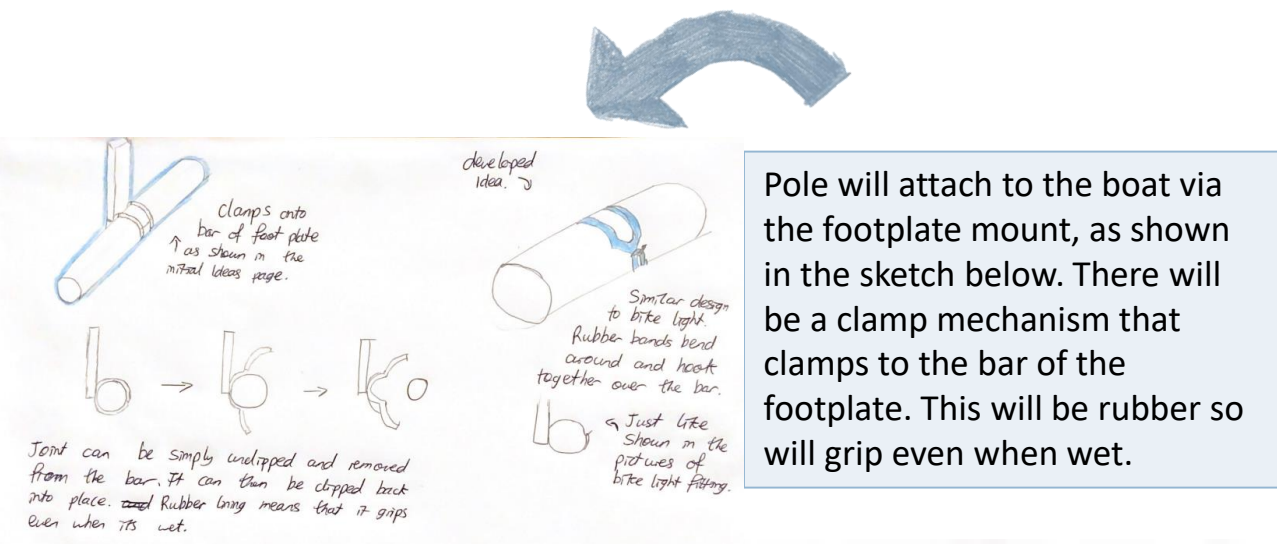 Clamps onto
bar of foot plate
as shown in the
initial Ideas page.
Joint can be simply unclipped and removed
from the bar. It can then be clipped back
into place. and Rubber lining means that it grips
even when its wet.
developed
idea.
Similar design
to bike light.
Rubber bands bend
around and hook
together over the bar.
Just like
shown in the
pictures of
bike light fitting.
Pole will attach to the boat via
the footplate mount, as shown
in the sketch below. There will
be a clamp mechanism that
clamps to the bar of the
footplate. This will be rubber so
will grip even when wet.